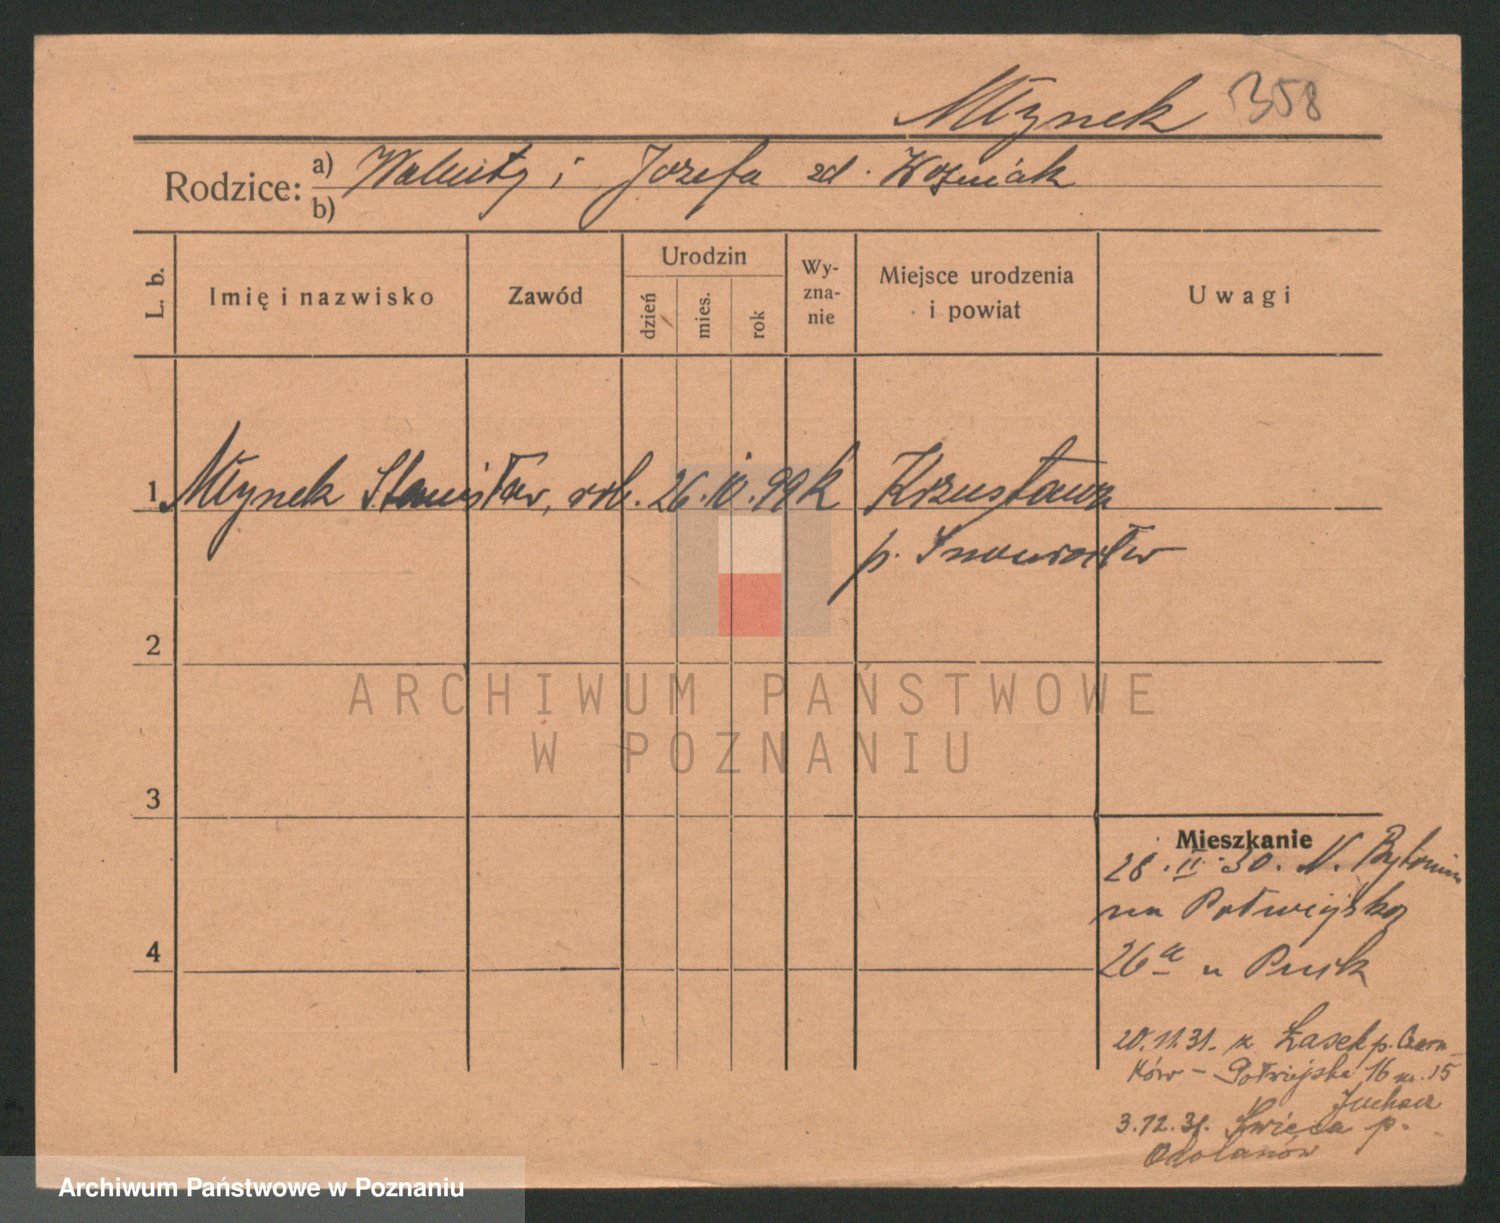 Młynek 358
Rodzice: a) Walenty i Józefa zd. Woźniak
b)
L. b.
Imię i nazwisko
Zawód
Urodzin
dzień
mies.
rok
Wy-
zna-
nie
Miejsce urodzenia
i powiat
Uwagi
1 Młynek Stanisław, rob. 26.10.99 k
p.
2
ARCHIWUM PAŃSTWOWE
W POZNANIU
3
Mieszkanie
28.II.30. N.
na Półwiejską
26a u
4
20.11.31. z Łasek p. Czarn
ków – Półwiejska 16 m. 15
3.12.31. Świeca p.
Odolanów
Archiwum Państwowe w Poznaniu